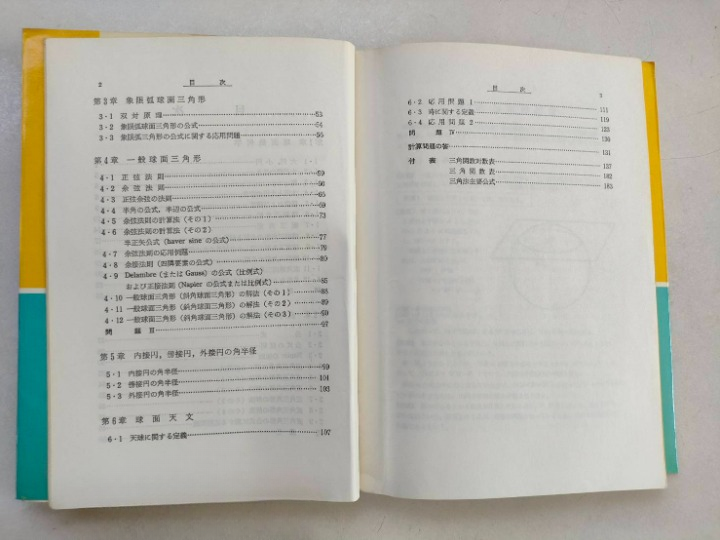 2 目次
第3章 象限弧球面三角形
3・1 双対原理 53
3・2 象限弧球面三角形の公式 54
3・3 象限弧三角形の公式に関する応用問題 56
第4章 一般球面三角形
4・1 正弦法則 59
4・2 余弦法則 60
4・3 正弦余弦の法則 65
4・4 半角の公式,半辺の公式 69
4・5 余弦法則の計算法(その1) 73
4・6 余弦法則の計算法(その2)
半正矢公式(haver sine の公式) 77
4・7 余弦法則の応用例題 79
4・8 余接法則(四隣要素の公式) 80
4・9 Delambre(または Gauss)の公式(比例式)
および正接法則(Napier の公式または比例式) 85
4・10 一般球面三角形(斜角球面三角形)の解法(その1)
4・11 一般球面三角形(斜角球面三角形)の解法(その2)
4・12 一般球面三角形(斜角球面三角形)の解法(その3)
問題 III 97
第5章 内接円,傍接円,外接円の角半径
5・1 内接円の角半径 99
5・2 傍接円の角半径 101
5・3 外接円の角半径 103
第6章 球面天文
6・1 天球に関する定義 107
目次 3
6・2 応用問題1 111
6・3 時に関する定義 119
6・4 応用問題2 123
問題 IV 130
計算問題の答 131
付表 三角関数対数表 137
三角関数表 182
三角法主要公式 183